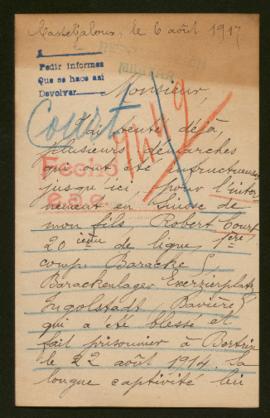 Casteljaloux, le 6 août 1917
A
Pedir informes
Que se hace asi
Devolver
Monsieur,
Court
J'ai tenté déjà
plusieurs démarches
qui ont été infructueuses
jusqu'ici, pour l'inter
nement en Suisse de
mon fils Robert Court
20 ième de ligne 1ère
comp Baracke 5
Barackenlager Exerzierplatz
Ingolstadt (Bavière)
qui a été blessé et
fait prisonnier à Bertrix
le 22 août 1914. Sa
longue captivité lui